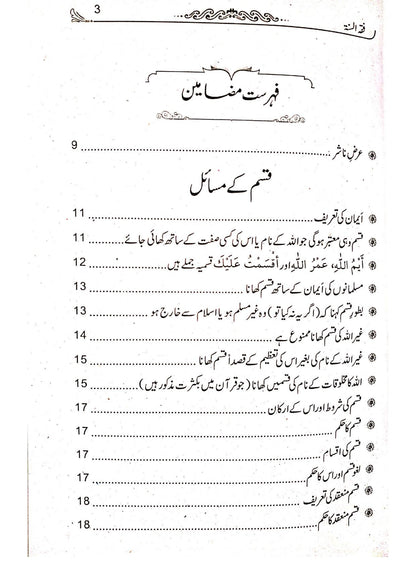 3 فقہ السنۃ
فہرست مضامین
عرض ناشر ........ 9
قسم کے مسائل
أیمان کی تعریف ........ 11
قسم وہی معتبر ہوگی جو اللہ کے نام یا اس کی کسی صفت کے ساتھ کھائی جائے ........ 11
أَيْمُ اللّٰهِ، عَمْرُ اللّٰهِ اور أَقْسَمْتُ عَلَيْكَ قسمیہ جملے ہیں ........ 12
مسلمانوں کی أیمان کے ساتھ قسم کھانا ........ 13
بطورِ قسم کہنا کہ (اگر یہ نہ کیا تو) وہ غیر مسلم ہو یا اسلام سے خارج ہو ........ 13
غیر اللہ کی قسم کھانا ممنوع ہے ........ 14
غیر اللہ کے نام کی بغیر اس کی تعظیم کے قصداً قسم کھانا ........ 15
اللہ کا مخلوقات کے نام کی قسمیں کھانا (جو قرآن میں بکثرت مذکور ہیں) ........ 15
قسم کی شروط اور اس کے ارکان ........ 17
قسم کا حکم ........ 17
قسم کی اقسام ........ 17
لغو قسم اور اس کا حکم ........ 17
قسم منعقد کی تعریف ........ 18
قسم منعقد کا حکم ........ 18